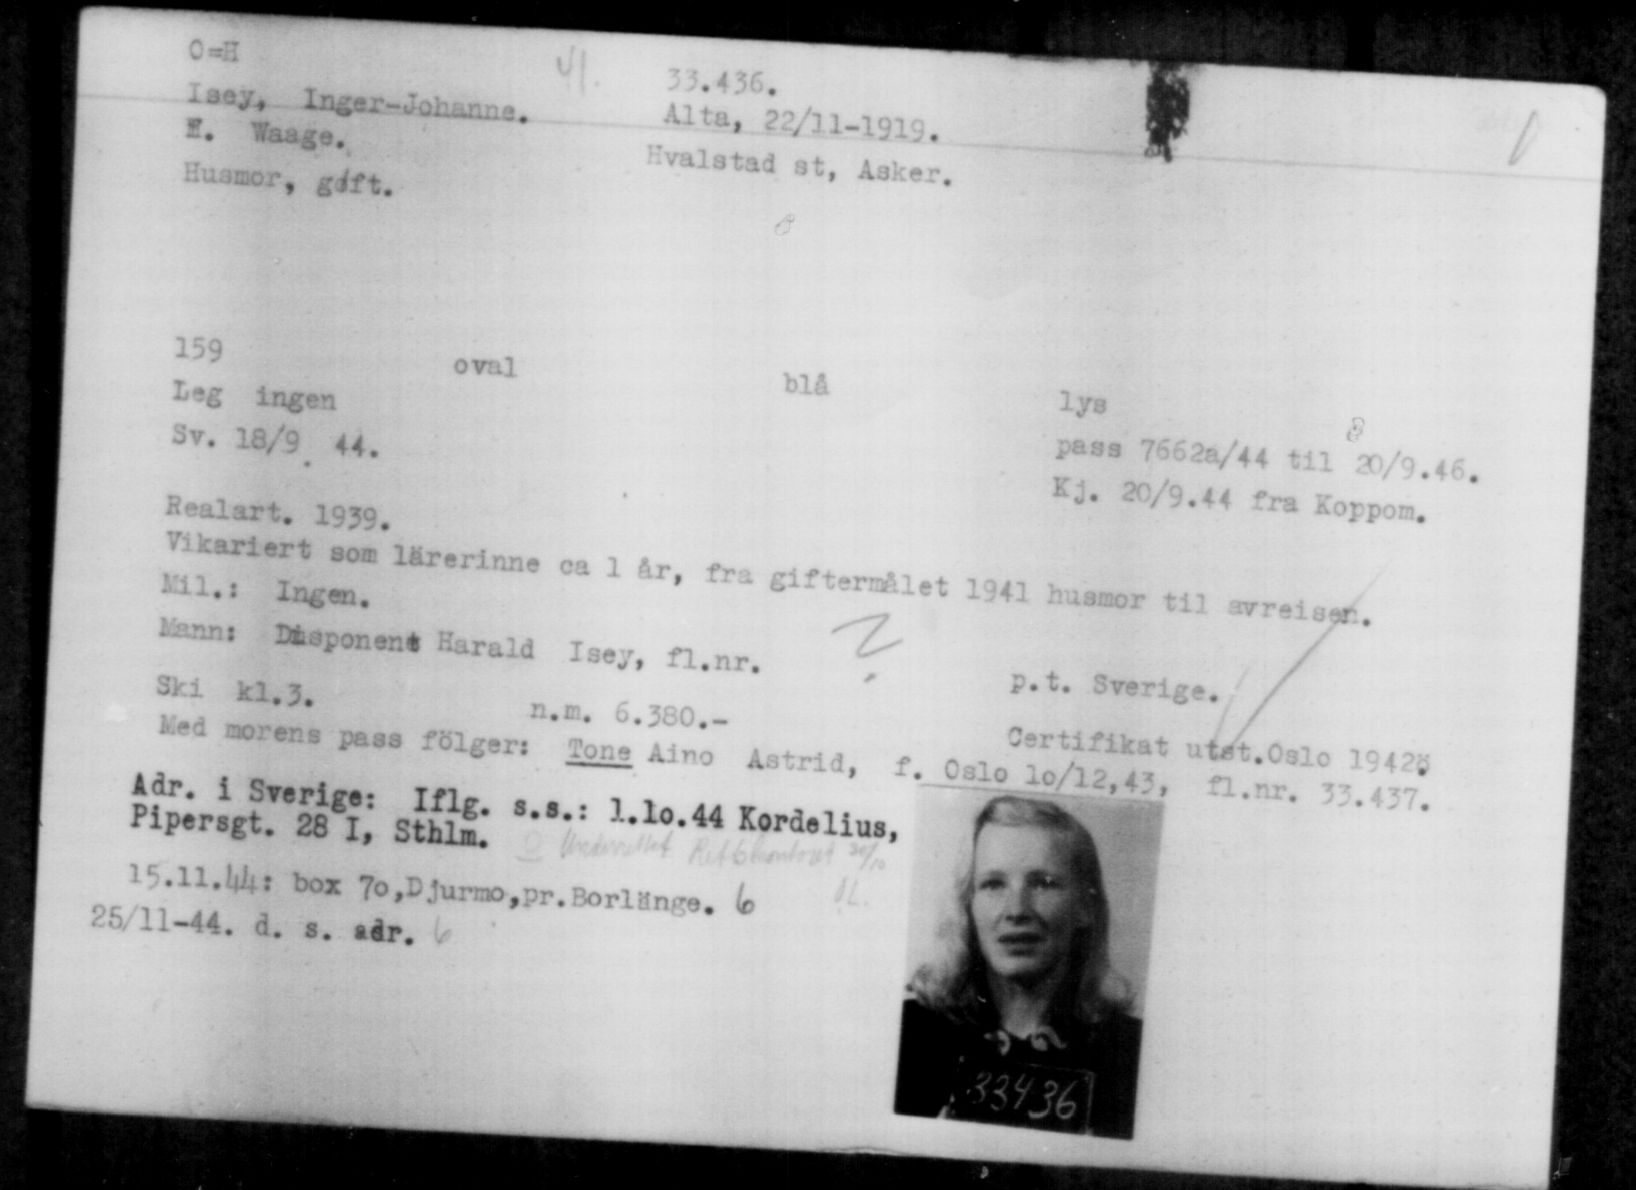 O=H
41. 33.436.
Isey, Inger-Johanne. Alta, 22/11-1919.
F. Waage. Hvalstad st, Asker.
Husmor, gift.
8
159 oval blå lys
Leg ingen pass 7662a/44 til 20/9.46.
Sv. 18/9 44. Kj. 20/9.44 fra Koppom.
Realart. 1939.
Vikariert som lärerinne ca 1 år, fra giftermålet 1941 husmor til avreisen.
Mil.: Ingen.
Mann: Disponent Harald Isey, fl.nr. ? p.t. Sverige.
Ski kl.3. n.m. 6.380.- Certifikat utst.Oslo 1942.
Med morens pass fölger: Tone Aino Astrid, f. Oslo 1o/12,43, fl.nr. 33.437.
Adr. i Sverige: Iflg. s.s.: 1.1o.44 Kordelius,
Pipersgt. 28 I, Sthlm. Underrettet Rettskontoret 20/10
15.11.44: box 7o,Djurmo,pr.Borlänge. 6
25/11-44. d. s. adr. 6
33436